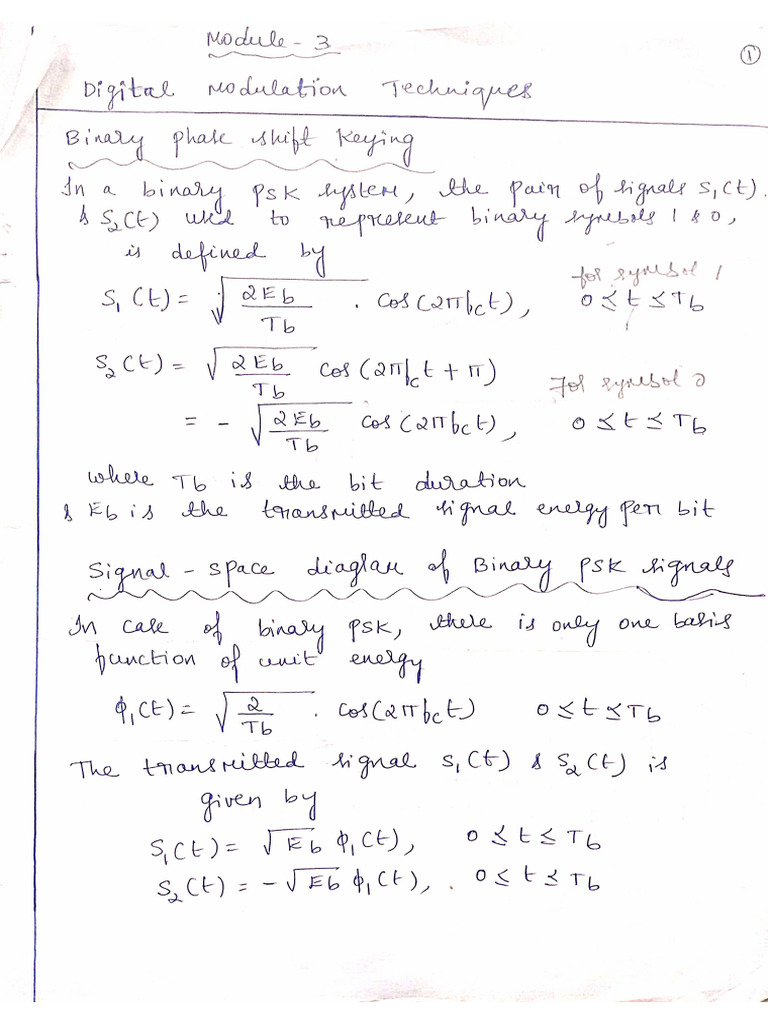 Module - 3
1
Digital Modulation Techniques
Binary phase shift Keying
In a binary PSK system, the pair of signals S₁(t).
& S₂(t) used to represent binary symbols 1 & 0,
is defined by
for symbol 1
S₁(t) = √(2Eb/Tb) . cos(2πfct), 0 ≤ t ≤ Tb
S₂(t) = √(2Eb/Tb) cos(2πfct + π)
For symbol 0
= - √(2Eb/Tb) cos(2πfct), 0 ≤ t ≤ Tb
where Tb is the bit duration
& Eb is the transmitted signal energy per bit
Signal - space diagram of Binary PSK signals
In case of binary PSK, there is only one basis
function of unit energy
ϕ₁(t) = √(2/Tb) . cos(2πfct) 0 ≤ t ≤ Tb
The transmitted signal S₁(t) & S₂(t) is
given by
S₁(t) = √Eb ϕ₁(t), 0 ≤ t ≤ Tb
S₂(t) = -√Eb ϕ₁(t), . 0 ≤ t ≤ Tb